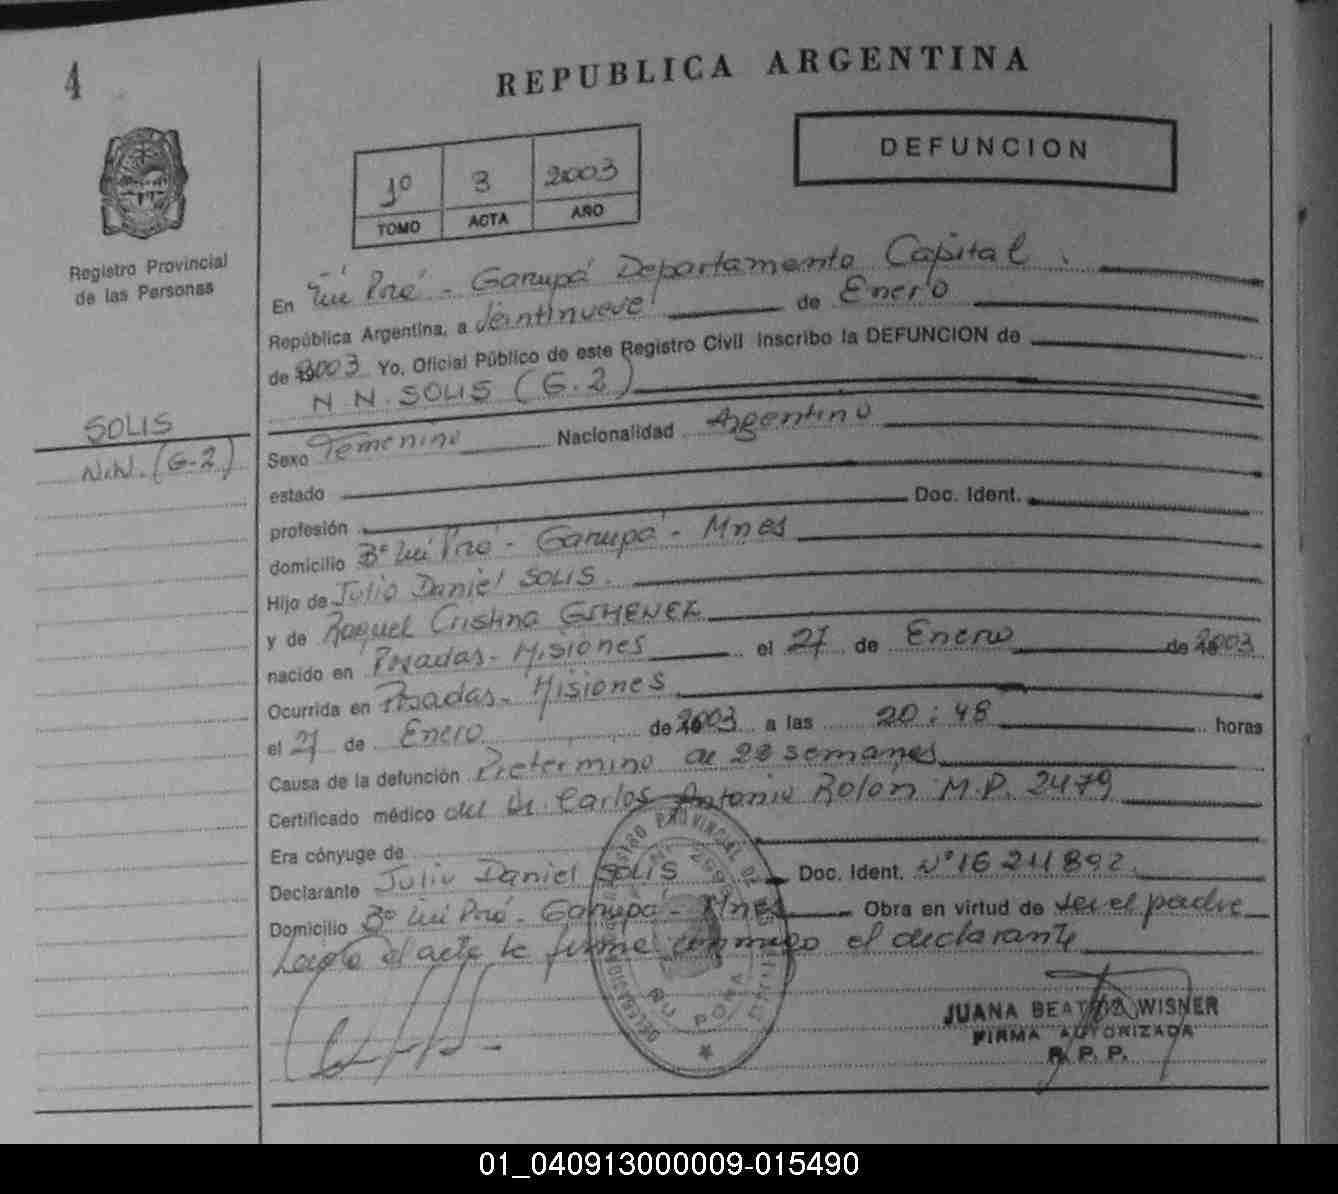 4
REPUBLICA ARGENTINA
DEFUNCION
1º 3 2003
TOMO ACTA AÑO
Registro Provincial
de las Personas
En Ñu Porá - Garupá Departamento Capital.
República Argentina, a Veintinueve de Enero
de 2003 Yo, Oficial Público de este Registro Civil inscribo la DEFUNCION de
N N. SOLIS (G.2)
SOLIS
N.N. (G-2)
Sexo Femenino Nacionalidad Argentino
estado
profesión Doc. Ident.
domicilio Bº Ñu Porá - Garupá - Mnes
Hijo de Julio Daniel SOLIS.
y de Raquel Cristina GIMENEZ
nacido en Posadas - Misiones el 27 de Enero de 2003
Ocurrida en Posadas - Misiones
el 27 de Enero de 2003 a las 20:48 horas
Causa de la defunción Pretermino de semanas
Certificado médico del Dr. Carlos Antonio Rolón M.P. 2479
Era cónyuge de
Declarante Julio Daniel SOLIS Doc. Ident. Nº 16 211892.
Domicilio Bº Ñu Porá - Garupá - Mnes Obra en virtud de ser el padre
Leída el acta la firma conmigo el declarante
REGISTRO PROVINCIAL DE
ÑU PORA
JUANA BEATRIZ WISNER
FIRMA AUTORIZADA
R. P. P.
01_040913000009-015490